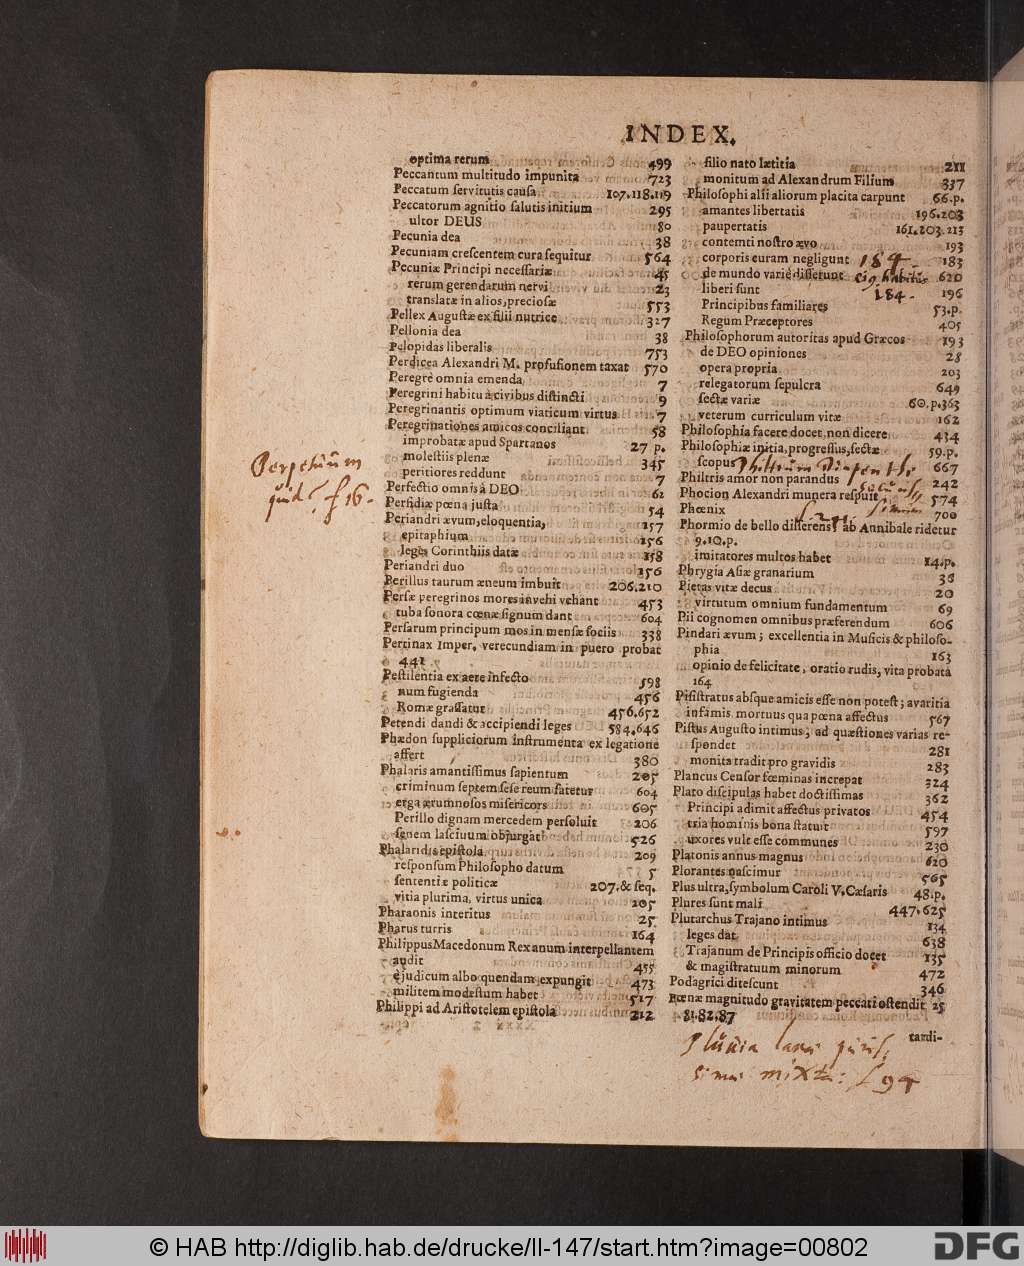 INDEX.
optima rerum 499
Peccantum multitudo impunita 723
Peccatum servitutis causa 107.118.119
Peccatorum agnitio salutis initium 295
ultor DEUS 80
Pecunia dea 38
Pecuniam crescentem cura sequitur 564
Pecuniæ Principi necessariæ 45
rerum gerendarum nervi 23
translatæ in alios, preciosæ 553
Pellex Augustæ ex filii nutrice 327
Pellonia dea 38
Pelopidas liberalis 753
Perdicea Alexandri M. profusionem taxat 570
Peregrè omnia emenda 7
Peregrini habitu à civibus distincti 9
Peregrinantis optimum viaticum virtus 7
Peregrinationes amicos conciliant 58
improbatæ apud Spartanos 27 p.
molestiis plenæ 345
peritiores reddunt 7
Perfectio omnis à DEO 62
Perfidiæ pœna justa 54
Periandri ævum, eloquentia, 157
epitaphium 156
leges Corinthiis datæ 158
Periandri duo 156
Perillus taurum æneum imbuit 206.210
Persæ peregrinos mores invehi vetant 453
tuba sonora cœnæ signum dant 604
Persarum principum mos in mensæ sociis 338
Pertinax Imper. verecundiam in puero probat
441
Pestilentia ex aere infecto 598
num fugienda 456
Romæ grassatur 456.652
Petendi dandi & accipiendi leges 584.646
Phædon suppliciorum instrumenta ex legatione
affert 380
Phalaris amantissimus sapientum 205
criminum septem sese reum fatetur 604
erga ærumnosos misericors 605
Perillo dignam mercedem persoluit 206
senem lascivum objurgat 526
Phalaridis epistola 209
responsum Philosopho datum 5
sententiæ politicæ 207.& seq.
vitia plurima, virtus unica 205
Pharaonis interitus 25
Pharus turris 164
Philippus Macedonum Rex anum interpellantem
audit 455
è judicum albo quendam expungit 473
militem modestum habet 517
Philippi ad Aristotelem epistola 212
filio nato lætitia 211
monitum ad Alexandrum Filium 337
Philosophi alsi aliorum placita carpunt 66.p.
amantes libertatis 196.203
paupertatis 161.203.213
contemti nostro ævo 193
corporis curam negligunt 184. 183
de mundo variè disserunt 620
liberi sunt 184. 196
Principibus familiares 53.p.
Regum Præceptores 405
Philosophorum autoritas apud Græcos 193
de DEO opiniones 28
opera propria 203
relegatorum sepulcra 649
sectæ variæ 60.p.363
veterum curriculum vitæ 162
Philosophia facere docet, non dicere 434
Philosophiæ initia, progressus, sectæ 59.p.
scopus 667
Philtris amor non parandus 242
Phocion Alexandri munera respuit 574
Phœnix 700
Phormio de bello disserens ab Annibale ridetur
9.10.p.
imitatores multos habet 14.p.
Phrygia Asiæ granarium 36
Pietas vitæ decus 20
virtutum omnium fundamentum 69
Pii cognomen omnibus præferendum 606
Pindari ævum; excellentia in Musicis & philoso-
phia 163
opinio de felicitate, oratio rudis, vita probata
164
Pisistratus absque amicis esse non potest; avaritia
infamis mortuus qua pœna affectus 567
Pistus Augusto intimus; ad quæstiones varias re-
spondet 281
monita tradit pro gravidis 283
Plancus Censor fœminas increpat 324
Plato discipulas habet doctissimas 362
Principi adimit affectus privatos 454
tria hominis bona statuit 597
uxores vult esse communes 230
Platonis annus magnus 620
Plorantes nascimur 565
Plus ultra, symbolum Caroli V. Cæsaris 48.p.
Plures sunt mali 447.625
Plutarchus Trajano intimus 134
leges dat 638
Trajanum de Principis officio docet 135
& magistratuum minorum 472
Podagrici ditescunt 346
Pœnæ magnitudo gravitatem peccati ostendit 25
81.82.87
tardi-
© HAB http://diglib.hab.de/drucke/ll-147/start.htm?image=00802
DFG